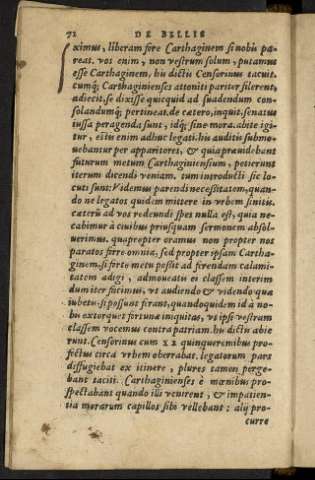 72 DE BELLIS
ximus, liberam fore Carthaginem si nobis pa-
reat. vos enim, non vestrum solum, putamus
esse Carthaginem, his dictis Censorinus tacuit.
cumq; Carthaginienses attoniti pariter silerent,
adiecit, se dixisse quicquid ad suadendum con-
solandumq; pertineat. de cætero, inquit, senatus
iussa peragenda sunt, idq; sine mora. abite igi-
tur, estis enim adhuc legati. his auditis submo-
uebantur per apparitores, & quia præuidebant
futurum metum Carthaginiensium, petierunt
iterum dicendi veniam. tum introducti sic lo-
cuti sunt: Videmus parendi necessitatem, quan-
do ne legatos quidem mittere in vrbem sinitis.
cæterũ ad vos redeundi spes nulla est, quia ne-
cabimur à ciuibus priusquam sermonem absol-
uerimus. quapropter oramus non propter nos
paratos ferre omnia, sed propter ipsam Cartha-
ginem, si forte metu possit ad ferendam calami-
tatem adigi, admoueatis ei classem interim
dum iter facimus, vt audiendo & videndo quæ
iubetis, si possunt ferant, quandoquidem id à no-
bis extorquet fortunæ iniquitas, vt ipsi vestram
classem vocemus contra patriam. his dictis abie
runt. Censorinus cum xx quinqueremibus pro-
fectus circa vrbem oberrabat. legatorum pars
diffugiebat ex itinere, plures tamen perge-
bant taciti. Carthaginienses è mœnibus pro-
spectabant quando illi venirent, & impatien-
tia morarum capillos sibi vellebant: alij pro-
curre